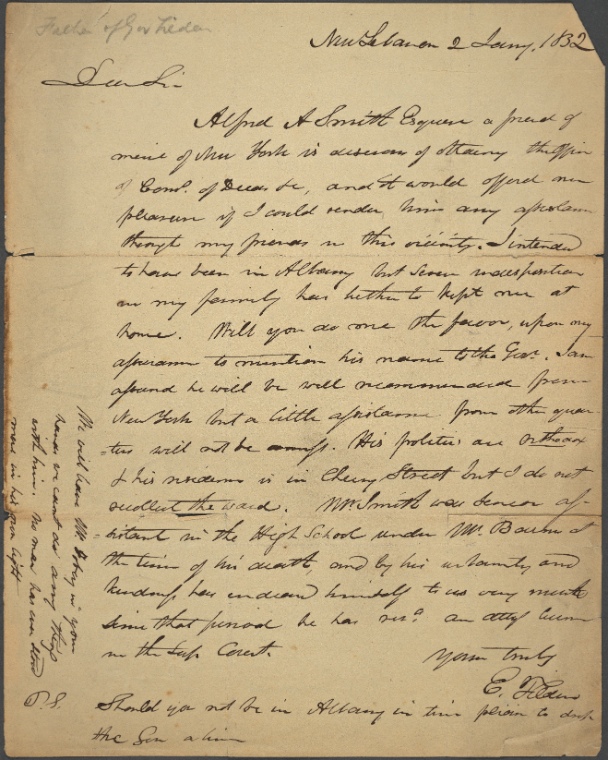 Father of Gov Tilden
New Lebanon 2 Jany. 1832
Dear Sir
Alfred A Smith Esquire a friend of
mine of New York is desirous of obtaining the office
of Comr. of Deeds &c, and it would afford me
pleasure if I could render him any assistance
through my friends in this vicinity. I intended
to have been in Albany but severe indisposition
in my family has hitherto kept me at
home. Will you do me the favor, upon my
assurance to mention his name to the Gov. I am
assured he will be well recommended from
New York but a little assistance from other quar-
ters will not be amiss. His politics are orthodox
& his residence is in Cherry Street but I do not
recollect the ward. Mr. Smith was senior as-
sistant in the High School under Mr. at
the time of his death, and by his urbanity and
kindness has endeared himself to us very much
since that period he has recd. an attys license
in the Sup. Court.
Yours truly
E. Tilden
P.S. Should you not be in Albany in time please to drop
the Gov a line
We will leave Mr. in your
hands we cant do any thing
with him. No man has ever stood
more in his own light